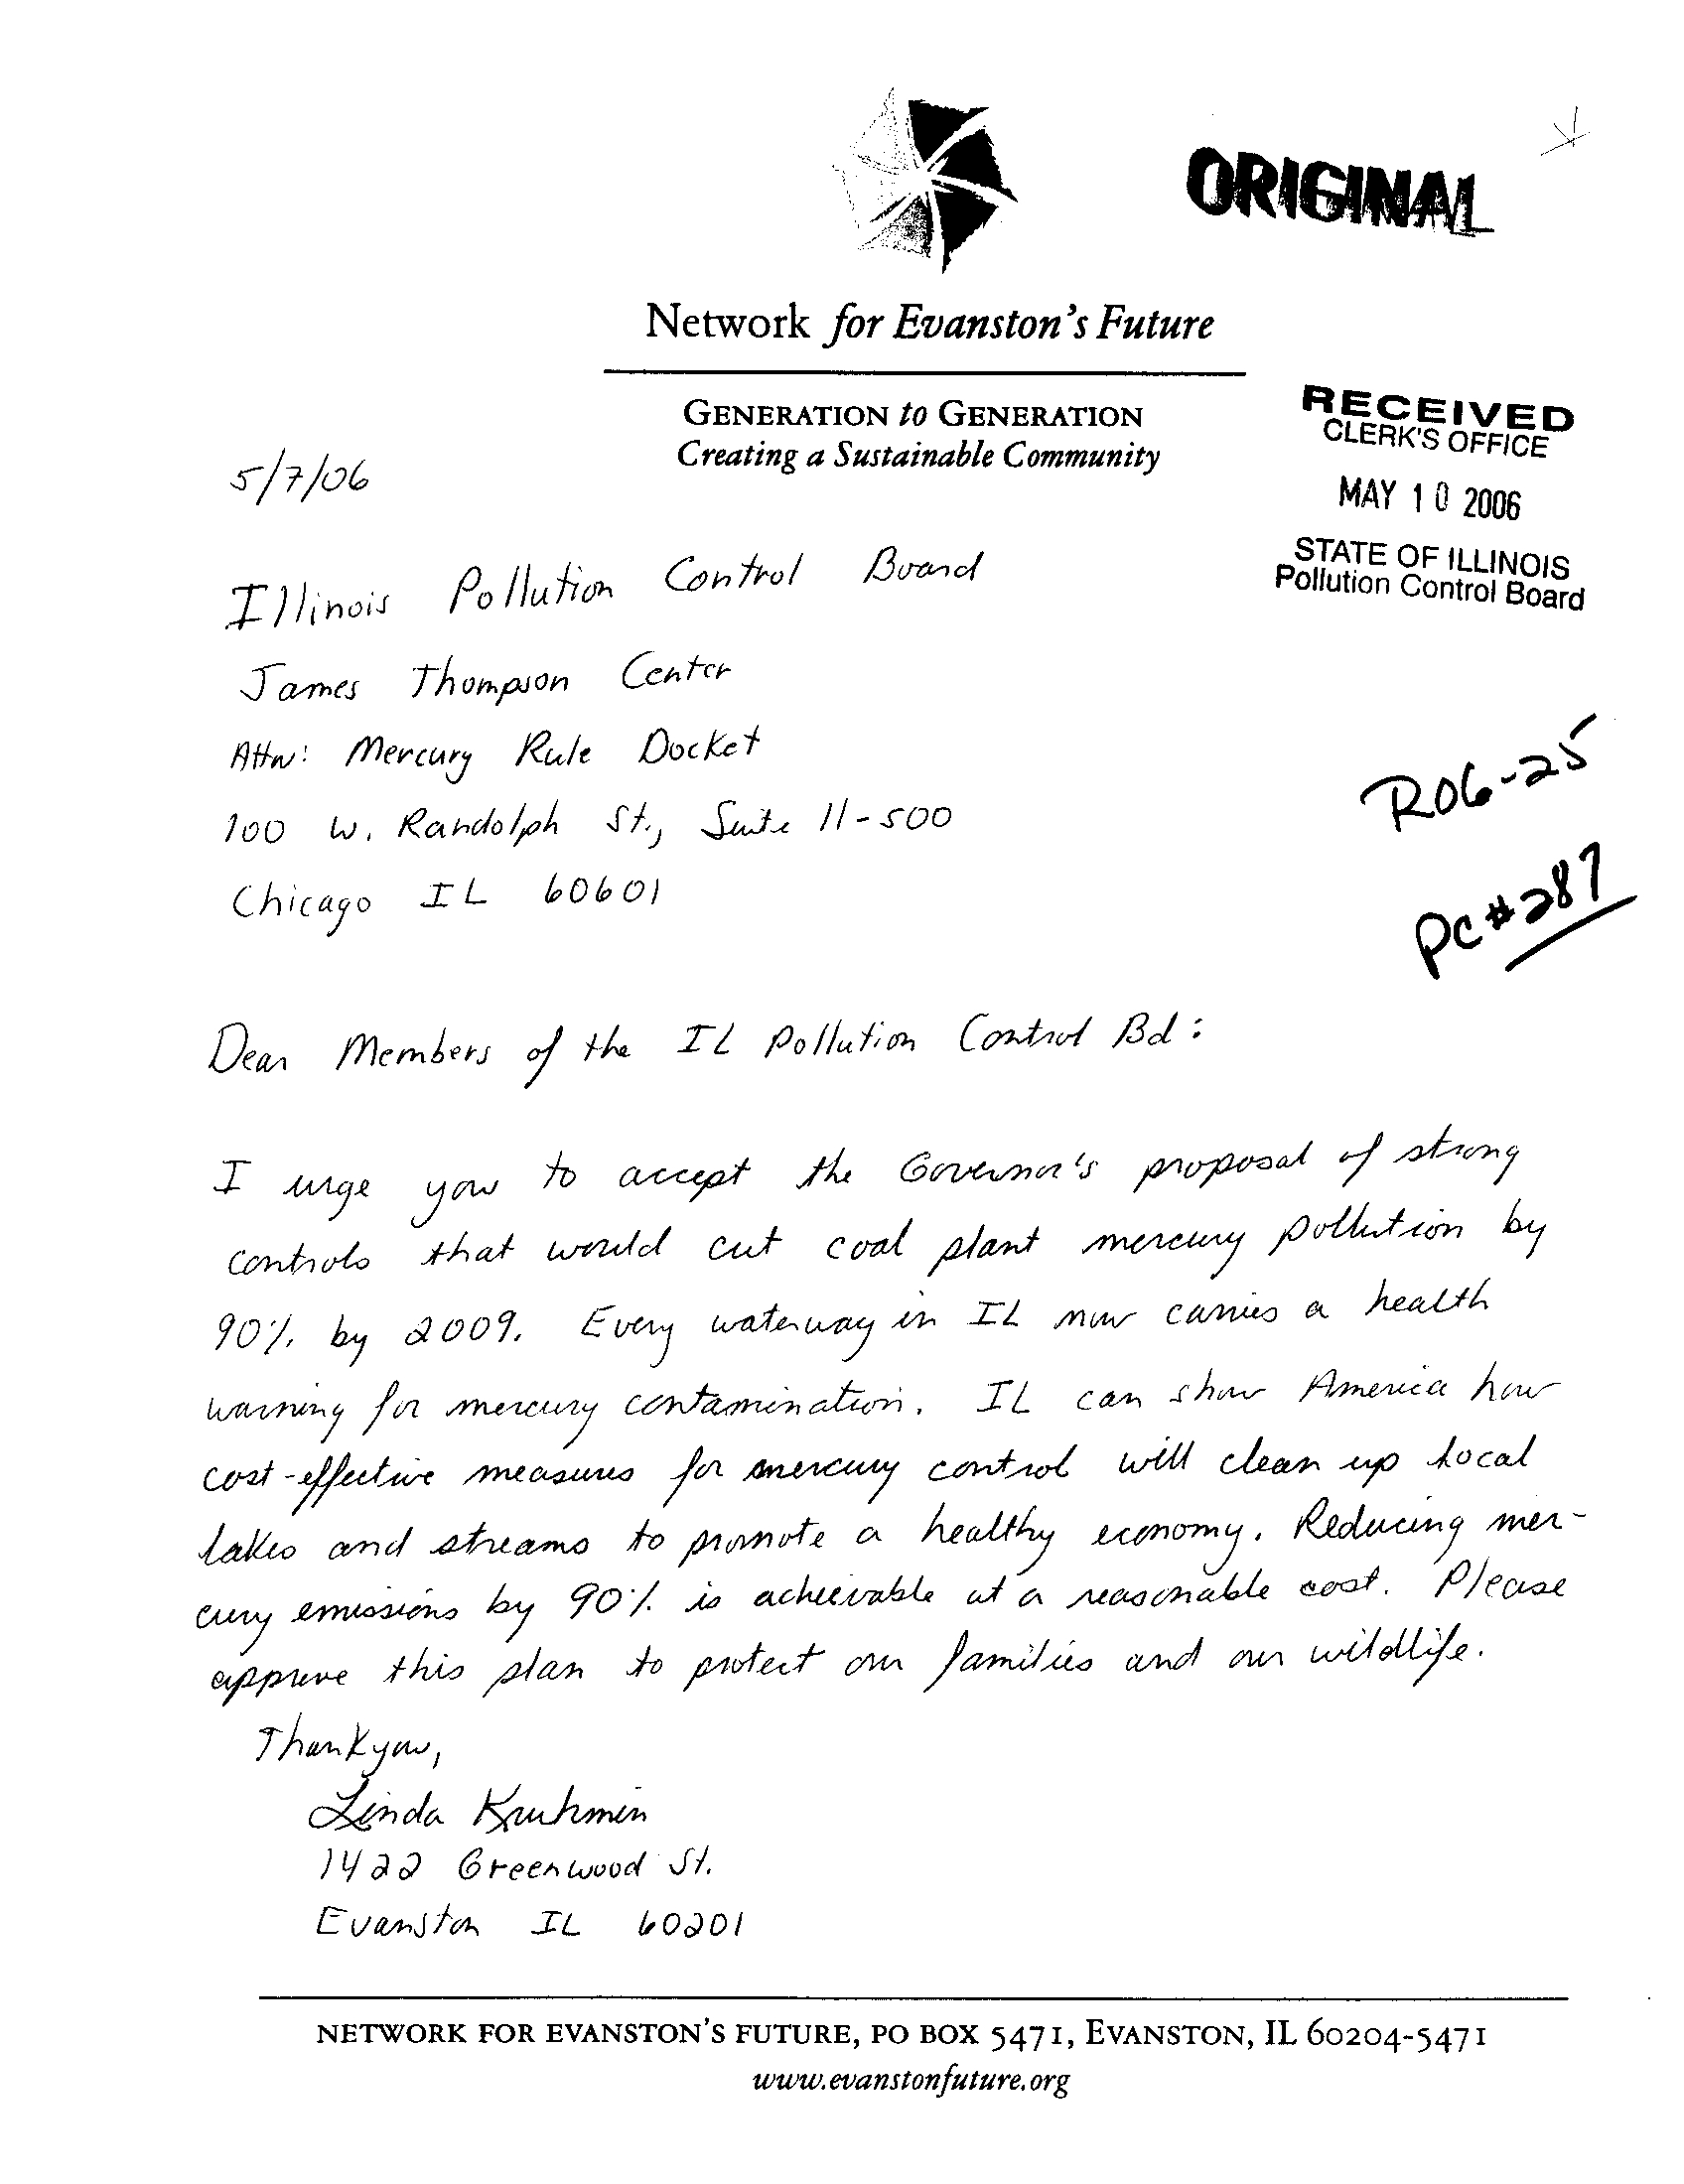 ORIGINAL
Network for Evanston's Future
GENERATION to GENERATION
Creating a Sustainable Community
RECEIVED
CLERK'S OFFICE
MAY 10 2006
STATE OF ILLINOIS
Pollution Control Board
5/7/06
Illinois Pollution Control Board
James Thompson Center
Attn: Mercury Rule Docket
100 W. Randolph St., Suite 11-500
Chicago IL 60601
R06-25
PC #287
Dear Members of the IL Pollution Control Bd:
I urge you to accept the Governor's proposal of strong
controls that would cut coal plant mercury pollution by
90% by 2009. Every waterway in IL now carries a health
warning for mercury contamination. IL can show America how
cost-effective measures for mercury control will clean up local
lakes and streams to promote a healthy economy. Reducing mer-
cury emissions by 90% is achievable at a reasonable cost. Please
approve this plan to protect our families and our wildlife.
Thank you,
Linda
1422 Greenwood St.
Evanston IL 60201
NETWORK FOR EVANSTON'S FUTURE, PO BOX 5471, EVANSTON, IL 60204-5471
www.evanstonfuture.org